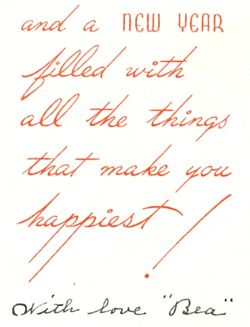 and a NEW YEAR
filled with
all the things
that make you
happiest!
With love "Bea"